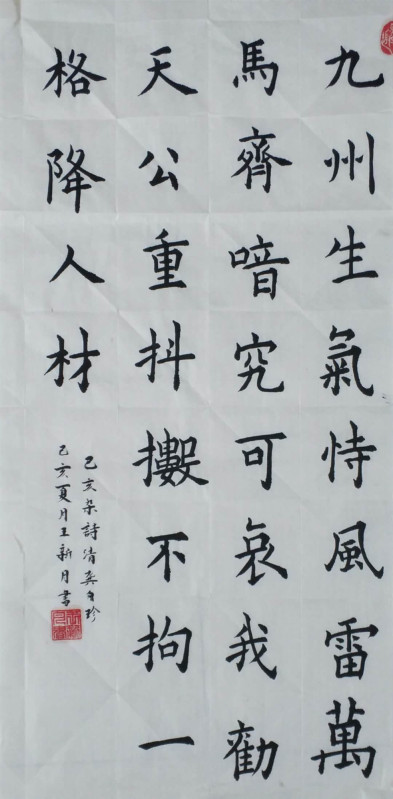 九州生氣恃風雷萬
馬齊喑究可哀我勸
天公重抖擻不拘一
格降人材
己亥杂詩清龚自珍
己亥夏月王新月書